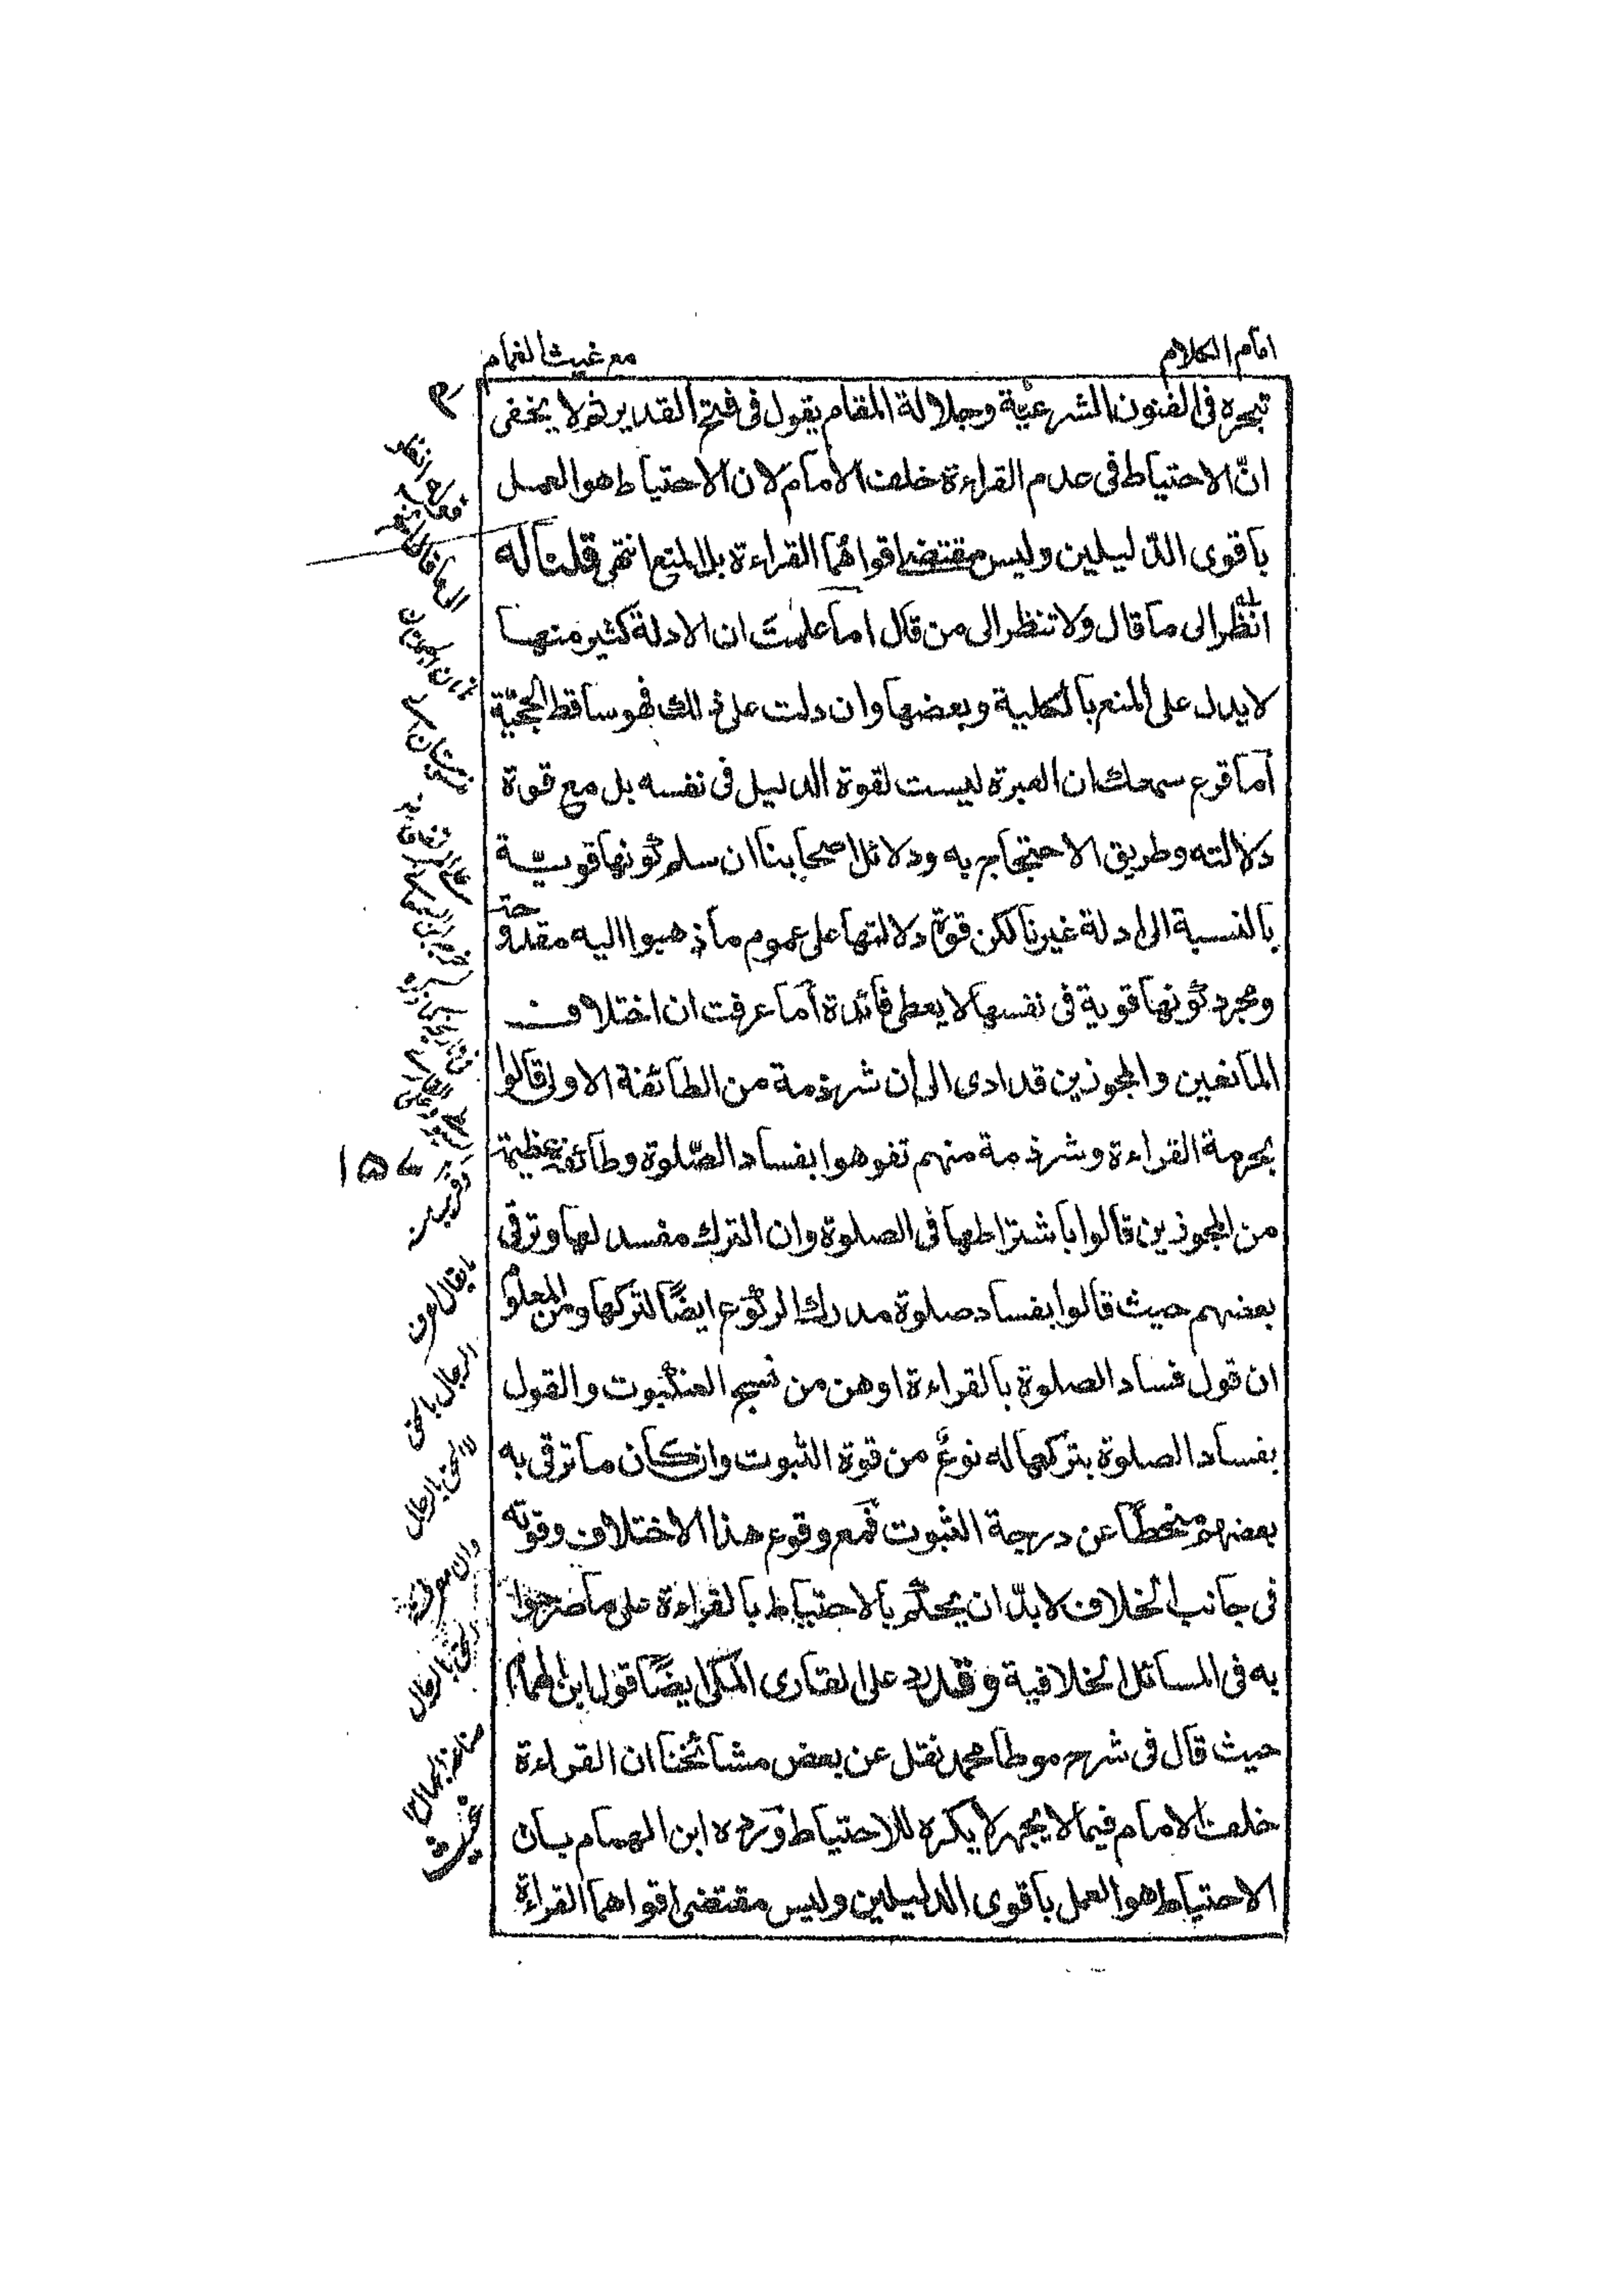 امام الكلام
مع غيث الغمام
تبحره فى الفنون الشرعيّة وجلالة المقام يقول فى فتح القدير ثم لا يخفى
انّ الاحتياط فى عدم القراءة خلف الامام لان الاحتياط هو العمل
باقوى الدليلين وليس مقتضى اقواهما القراءة بل المنع انتهى قلنا له
انظر الى ما قال ولا تنظر الى من قال اما علمت ان الادلة كثير منها
لا يدل على المنع بالكلية وبعضها وان دلت على ذلك فهو ساقط الحجيّة
أما قرع سمعك ان العبرة ليست لقوة الدليل فى نفسه بل مع قوة
دلالته وطريق الاحتجاج به ودلائل اصحابنا ان سلم كونها قويّة
بالنسبة الى ادلة غيرنا لكن قوة دلالتها على عموم ما ذهبوا اليه مقدوحة
ومجرد كونها قوية فى نفسها لا يعطى فائدة أما عرفت ان اختلاف
المانعين والمجوزين قد ادى الى ان شرذمة من الطائفة الاولى قالوا
بحرمة القراءة وشرذمة منهم تفوهوا بفساد الصّلوة وطائفة عظيمة
من المجوزين قالوا باشتراطها فى الصلوة وان الترك مفسد لها وترقى
بعضهم حيث قالوا بفساد صلوة مدرك الركوع ايضًا لتركها ومن المعلوم
ان قول فساد الصلوة بالقراءة اوهن من نسج العنكبوت والقول
بفساد الصلوة بتركها له نوعٌ من قوة الثبوت وان كان ما ترقى به
بعضهم منحطًّا عن درجة الثبوت فمع وقوع هذا الاختلاف وقوته
فى جانب الخلاف لا بدّ ان يحكم بالاحتياط بالقراءة على ما صرحوا
به فى المسائل الخلافية وقد رد على القارى المكى ايضًا قول ابن الهمام
حيث قال فى شرح موطا محمد نقل عن بعض مشائخنا ان القراءة
خلف الامام فيما لا يجهر لا يكره للاحتياط ورده ابن الهمام بان
الاحتياط هو العمل باقوى الدليلين وليس مقتضى اقواهما القراءة
١٥٧
ما يقال اعرف
الرجال بالحق
لا الحق بالرجال
وان معرفة
الحق بالرجال